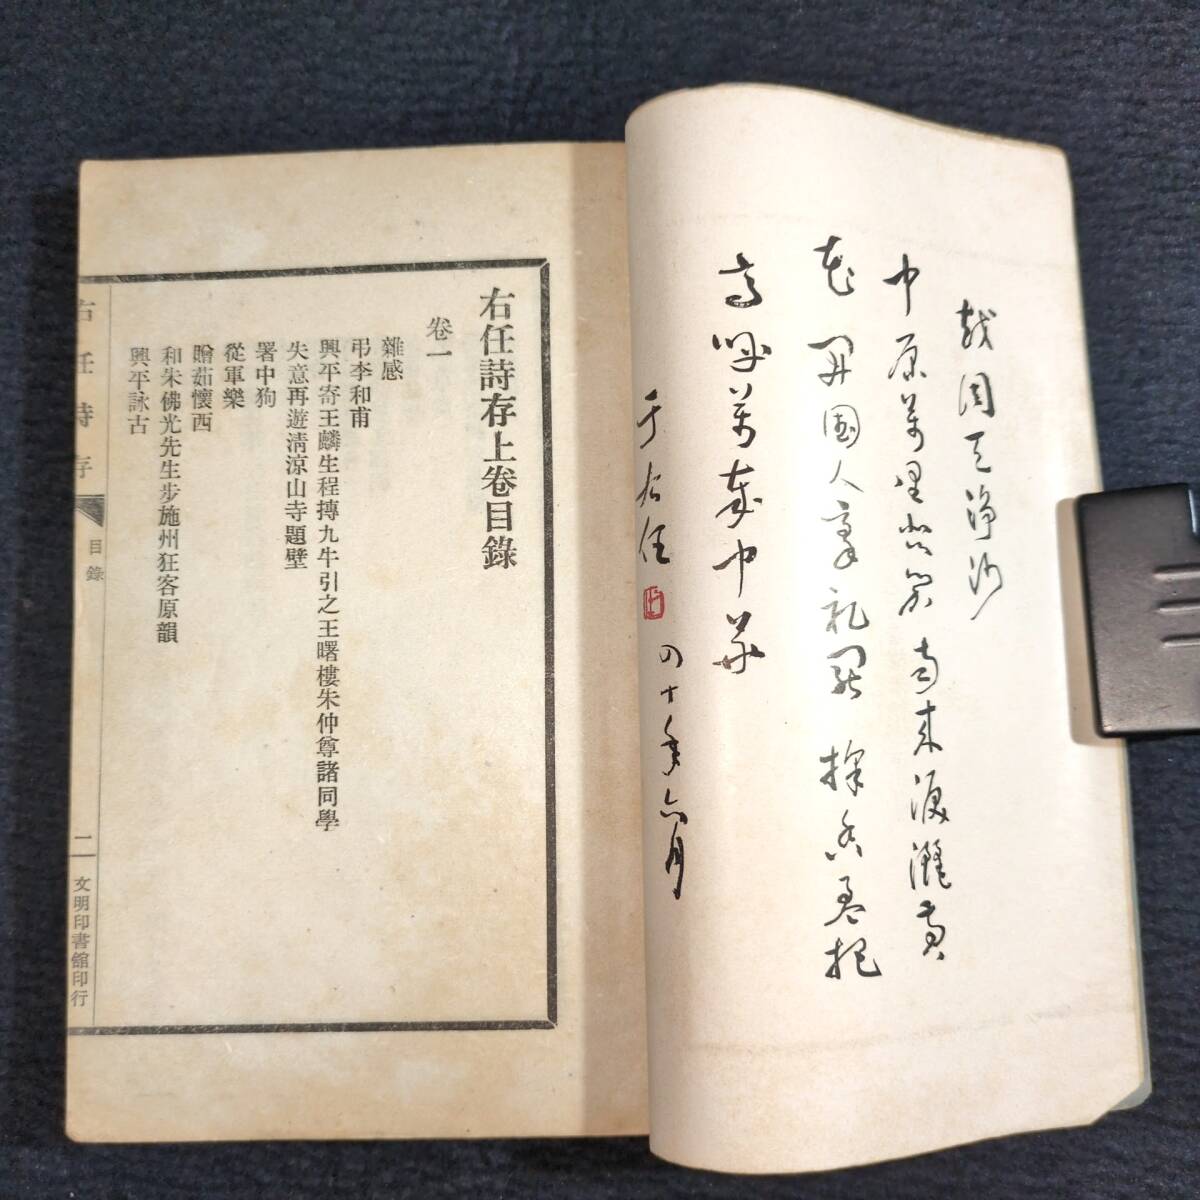 越調天淨沙
中原萬里悲笳 南來淚灑黃
花 開國人豪禮罷 採香盈把
高呼萬歲中華
于右任
四十年六月
右任詩存上卷目錄
卷一
雜感
弔李和甫
興平寄王麟生程摶九牛引之王曙樓朱仲尊諸同學
失意再遊清涼山寺題壁
署中狗
從軍樂
贈茹懷西
和朱佛光先生步施州狂客原韻
興平詠古
右任詩存 目錄 二 文明印書館印行